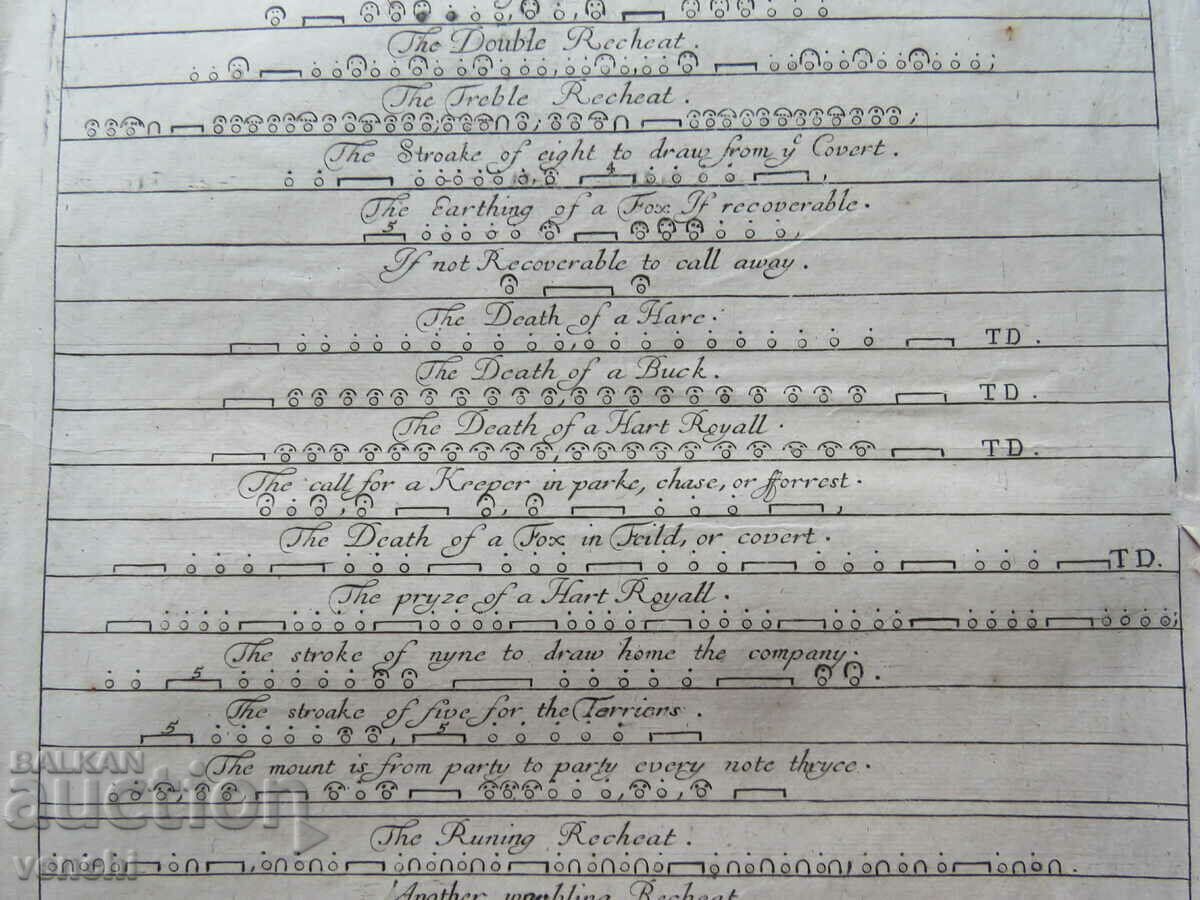 The Double Recheat.
The Treble Recheat.
The Stroake of eight to draw from yᵉ Covert.
4
The Earthing of a Fox If recoverable.
5
If not Recoverable to call away.
The Death of a Hare.
TD.
The Death of a Buck.
TD.
The Death of a Hart Royall.
TD.
The call for a Keeper in parke, chase, or fforrest.
The Death of a Fox in Feild, or covert.
TD.
The pryze of a Hart Royall.
The stroke of nyne to draw home the company.
5
The stroake of five for the Terriers.
5 5
The mount is from party to party every note thryce.
The Runing Recheat.
Another Recheat
BALKAN
auction
venchi